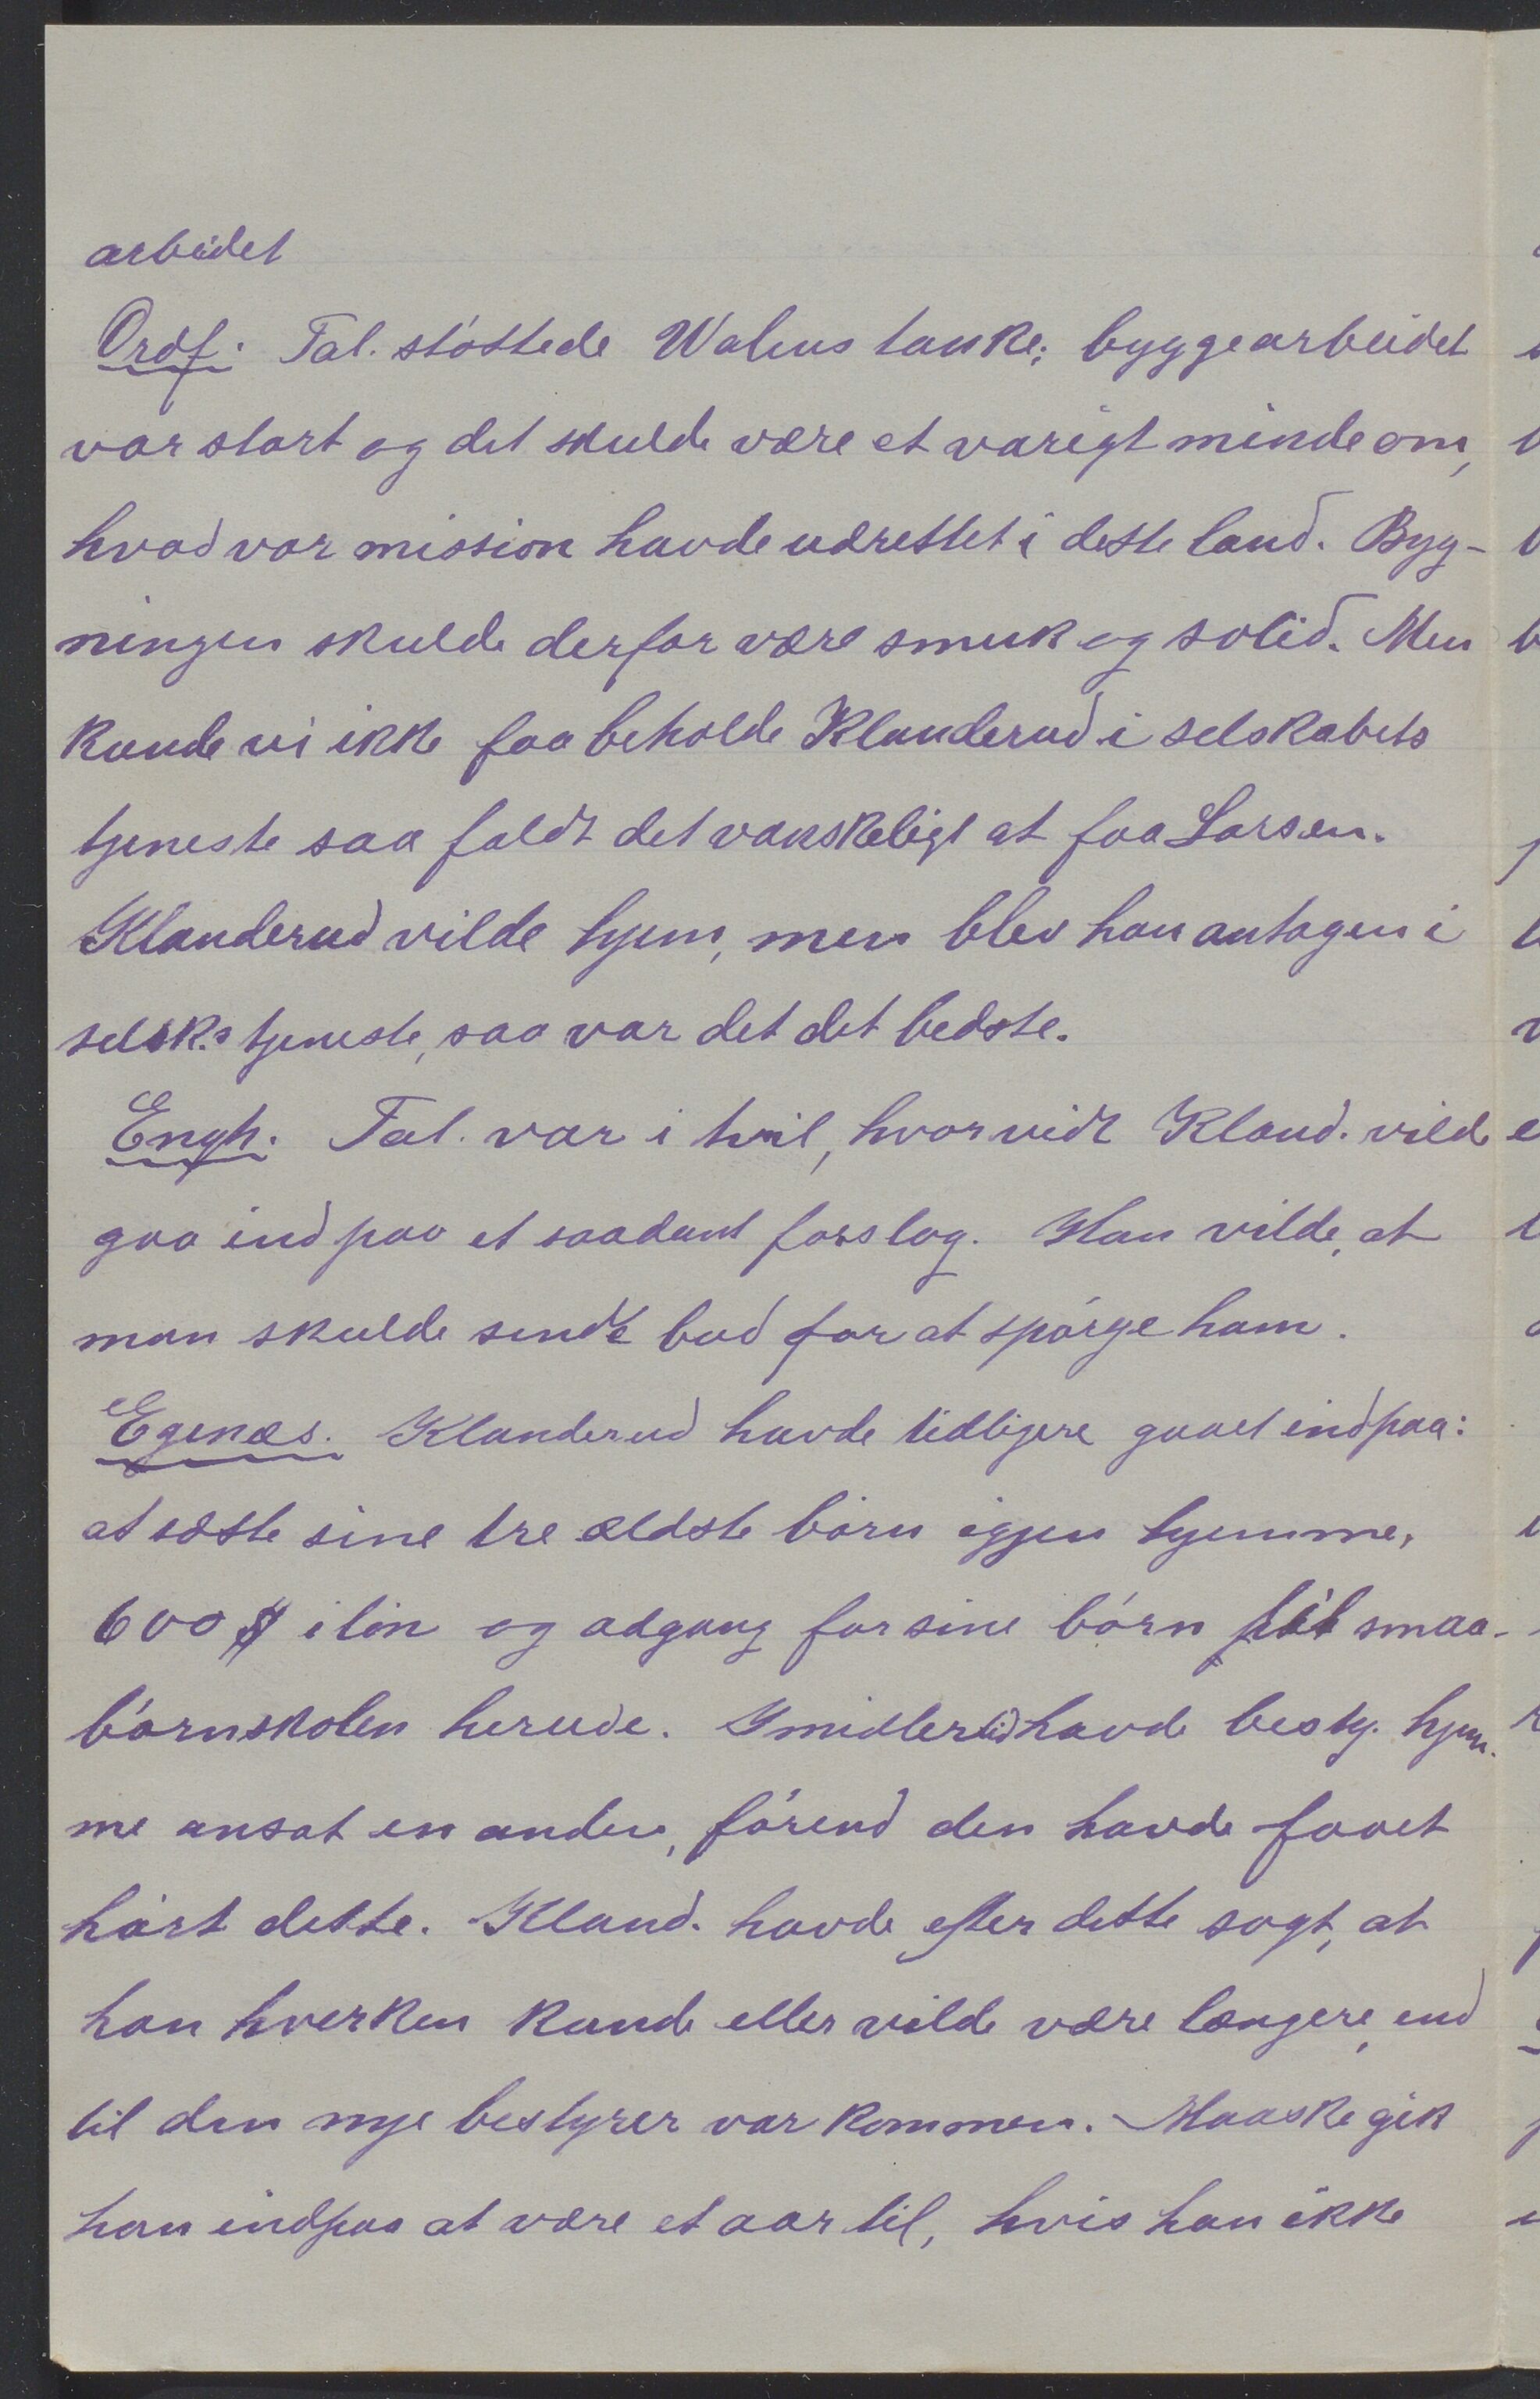 arbeidet
Ordf. Tal. støttede Walens tanke; byggearbeidet
var stort og det skulde være et varigt minde om,
hvad vor mission havde udrettet i dette land. Byg-
ningen skulde derfor være smuk og solid. Men
kunde vi ikke faa beholde Klanderud i selskabets
tjeneste saa faldt det vanskeligt at faa Larsen.
Klanderud vilde hjem, men blev han antagen i
selsk.s tjeneste, saa var det det bedste.
Engh. Tal. var i tvil, hvorvidt Kland. vilde
gaa ind paa et saadant forslag. Han vilde, at
man skulde sende bud for at spørge ham.
Egenæs. Klanderud havde tidligere gaaet indpaa:
at sætte sine tre ældste børn igjen hjemme,
600 $ i løn og adgang for sine børn til smaa-
børnskolen herude. Imidlertid havde besty. hjem-
me ansat en anden, førend den havde faaet
hørt dette. Kland. havde efter dette sagt, at
han hverken kunde eller vilde være længere, end
til den nye bestyrer var kommen. Maaske gik
han indpaa at være et aar til, hvis han ikke